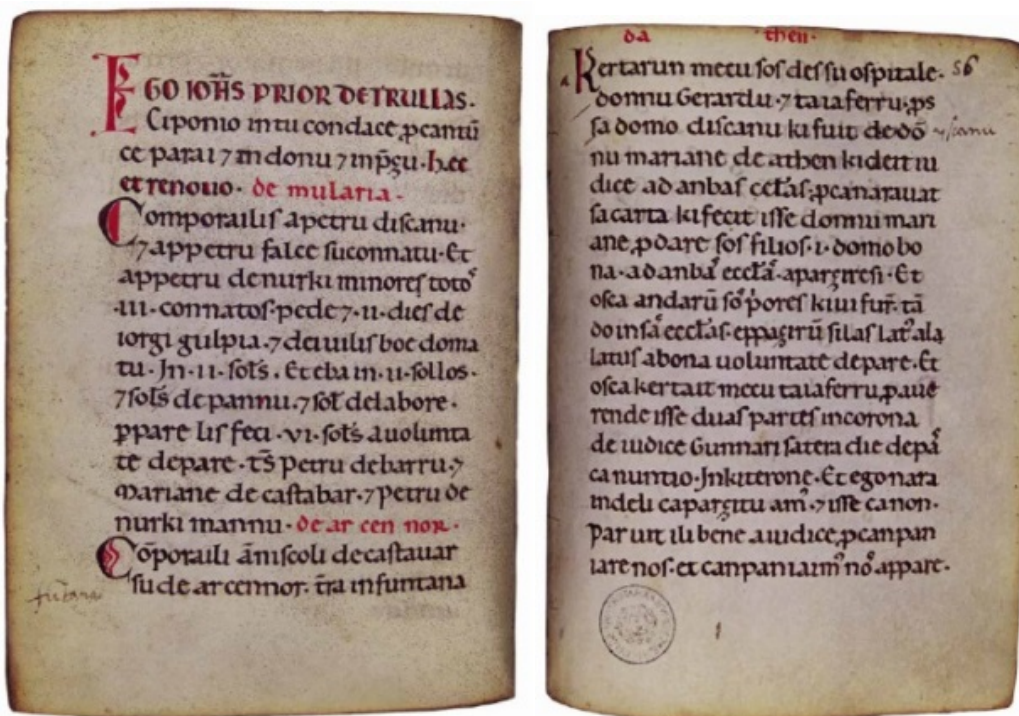 EGO IOHS PRIOR DE TRULLAS.
Ci ponio in tu condace, pcantu
ce parai ⁊ in donu ⁊ inpgu. hec
et renouo. de mularia.
Comporailis a petru discanu.
⁊ appetru falce suconnatu. Et
appetru de nurki minores toto
.iii. connatos. pede ⁊ .ii. dies de
iorgi gulpia. ⁊ deiuilis boe doma
tu. In .ii. sols. Et eba in .ii. sollos.
⁊ sols de pannu. ⁊ sol delabore.
ppare lis feci .vi. sols a uolunta
te depare. ts petru debarru. ⁊
Mariane de castabar. ⁊ petru de
nurki mannu. de ar cen nor.
Coporaili amiscoli de castauar
su de arcennor. tra in funtana
da then.
Kertarun mecu sos dessu ospitale. 56
donnu Gerardu. ⁊ taiaferru. ps
sa domo discanu ki fuit de do
nu mariane de athen ki deit iu
dice ad anbas cclas. pcanarauat
sa carta ki fecit isse donnu mari
ane, pdare sos filios .i. domo bo
na. ad anba eccla. apargiresi. Et
osca andaru so pores kiui fur. ta
do insa ecclas. eppagiru silas lat ala
latus abona uoluntate depare. Et
osca kertait mecu taiaferru, p aue
rende isse duas partes in corona
de iudice Gunnari satera die depa
ca nuntio. In kiterone. Et ego nara
indeli capargitu am. ⁊ isse canon.
Paruit ili bene a iudice, pcanpan
iare nos. et canpaniaim no appare.